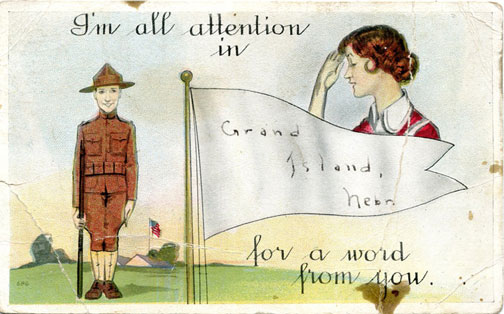 I'm all attention
in
Grand
Island,
Nebr.
for a word
from you.